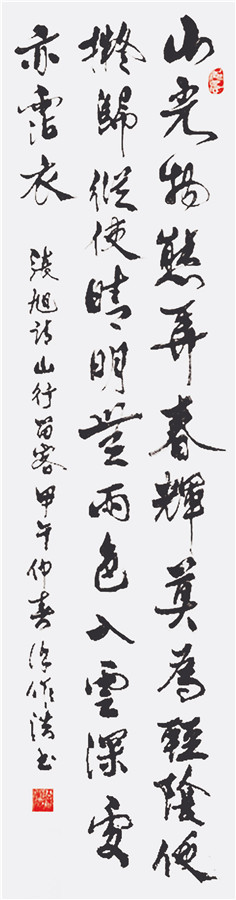 山光物態弄春輝莫為輕陰便
擬歸縱使晴明無雨色入雲深處
亦霑衣
張旭詩山行留客甲午仲春徐作書